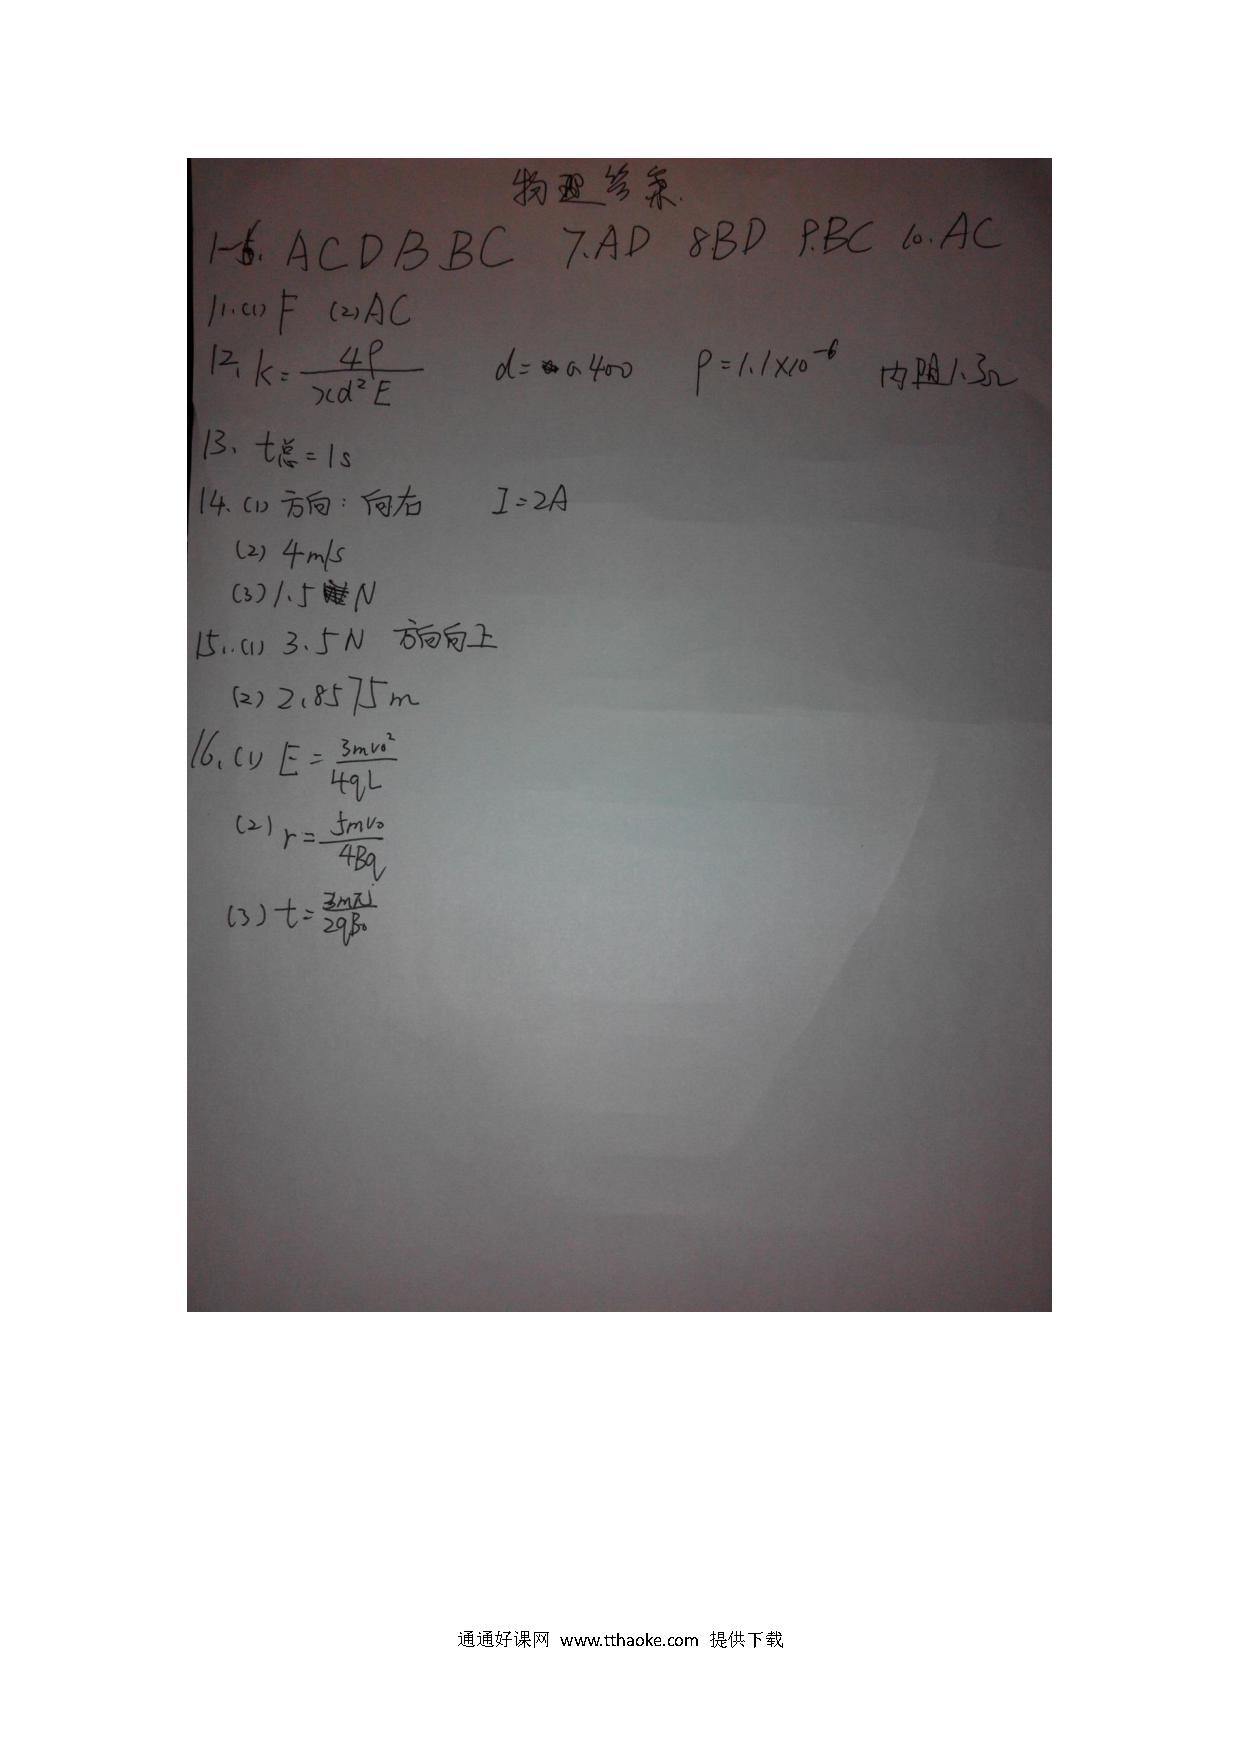 物理答案.
1-6. A C D B B C 7.AD 8.BD 9.BC 10.AC
11.(1) F (2) AC
12. k = 4ρ/xd²E d = 0.400 ρ = 1.1×10⁻⁶ 内阻1.3Ω
13. t总 = 1s
14. (1) 方向: 向右 I = 2A
(2) 4m/s
(3) 1.5 N
15. (1) 3.5N 方向向上
(2) 2.8575m
16. (1) E = 3mv₀²/4qL
(2) r = 5mv₀/4Bq
(3) t = 3mπ/2qB₀
通通好课网 www.tthaoke.com 提供下载